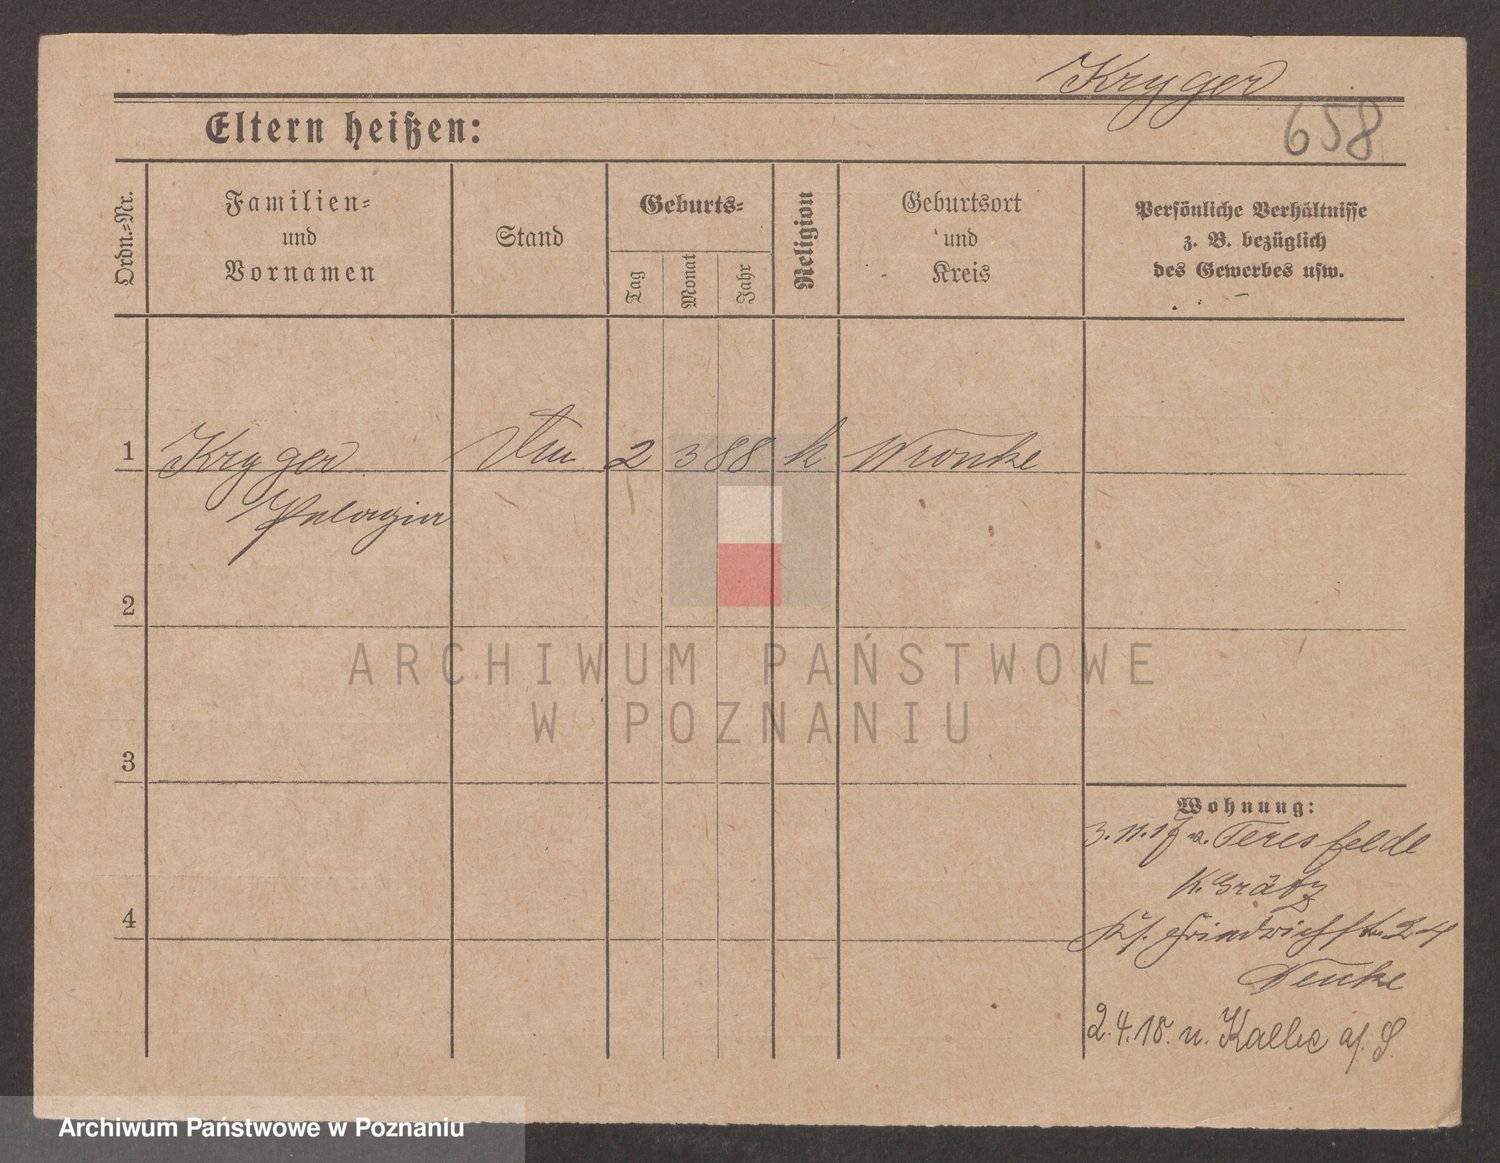 Kryger
658
Eltern heißen:
Ordn.-Nr.
Familien-
und
Vornamen
Stand
Geburts-
Tag
Monat
Jahr
Religion
Geburtsort
und
Kreis
Persönliche Verhältnisse
z. B. bezüglich
des Gewerbes usw.
1 Kryger 2 3 88 k Wronke
Pelagia
2
ARCHIWUM PAŃSTWOWE
W POZNANIU
3
Wohnung:
3.11.17 a. Teresfelde
K. Grätz
4
24
2.4.18. n. Kalbe a/ S.
Archiwum Państwowe w Poznaniu